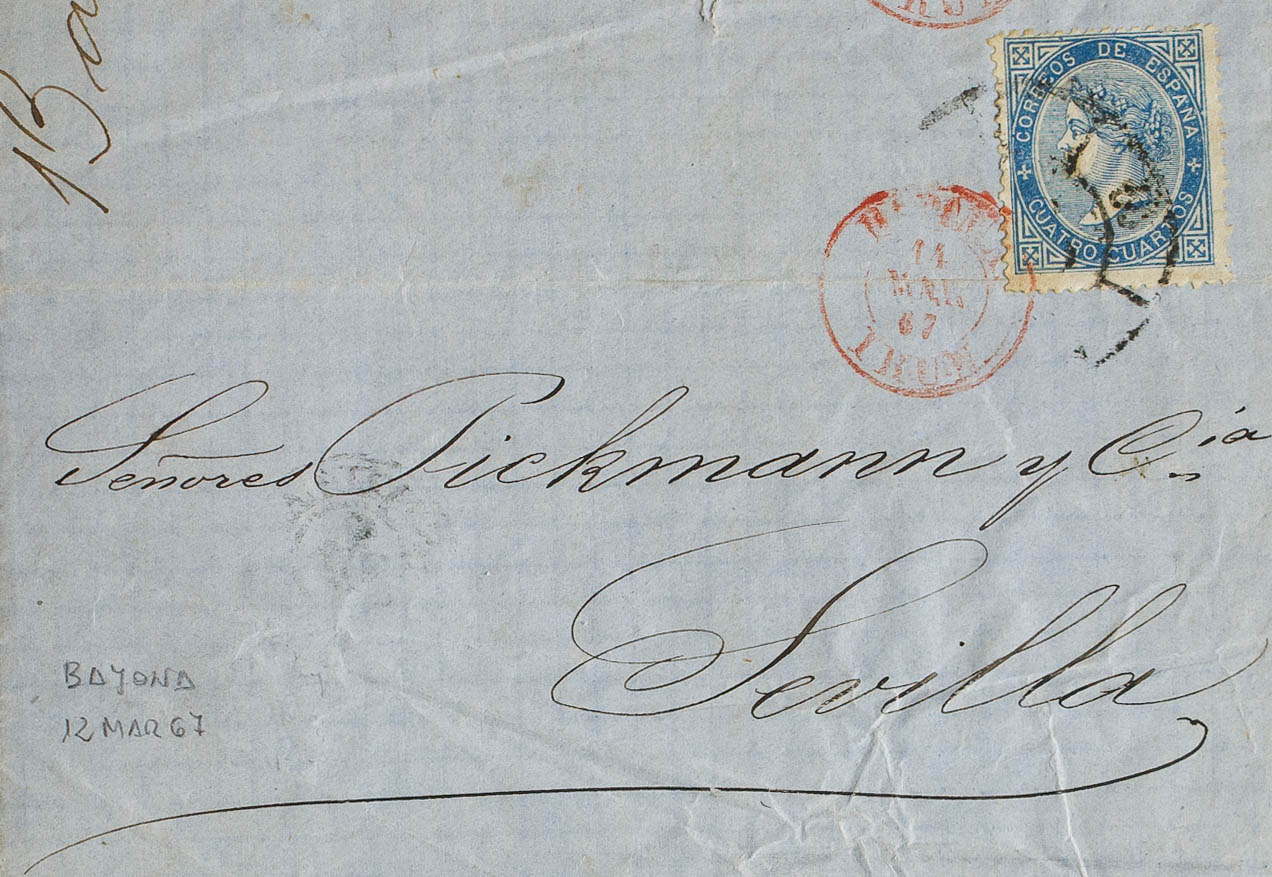 Ba
CORREOS DE ESPAÑA
CUATRO CUARTOS
MAR
67
IRUN
Señores Pickmann y C.ia
Sevilla
BAYONA
12 MAR 67